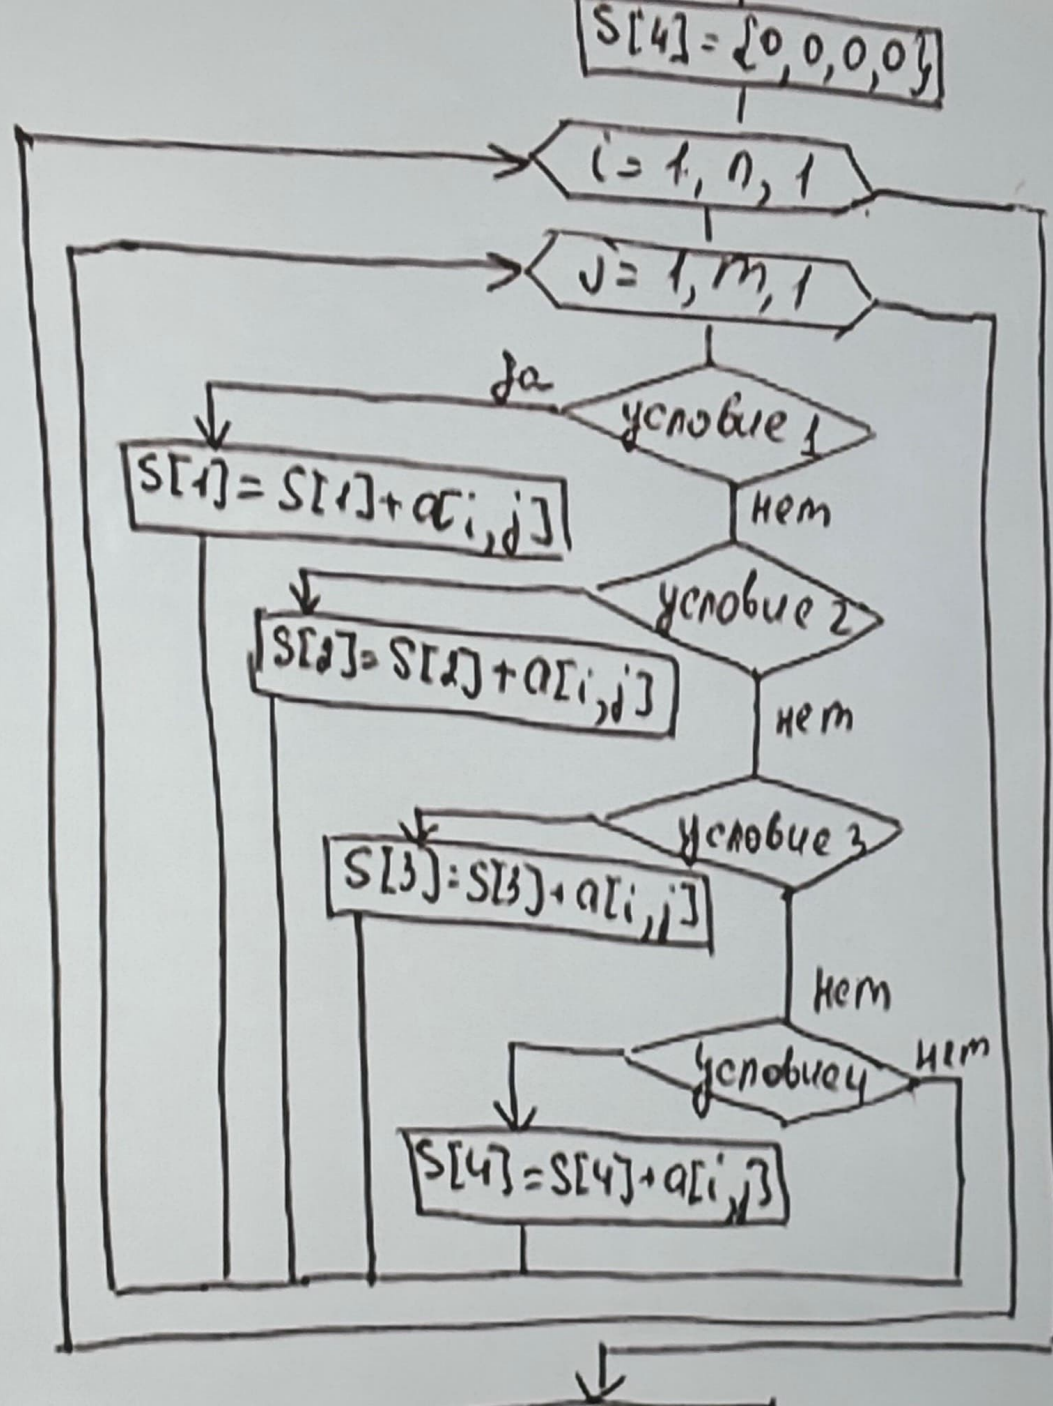 S[4] = {0, 0, 0, 0}
i = 1, n, 1
j = 1, m, 1
да
условие 1
S[1] = S[1] + a[i,j]
нет
условие 2
S[2] = S[2] + a[i,j]
нет
условие 3
S[3] = S[3] + a[i,j]
нет
условие 4
нет
S[4] = S[4] + a[i,j]